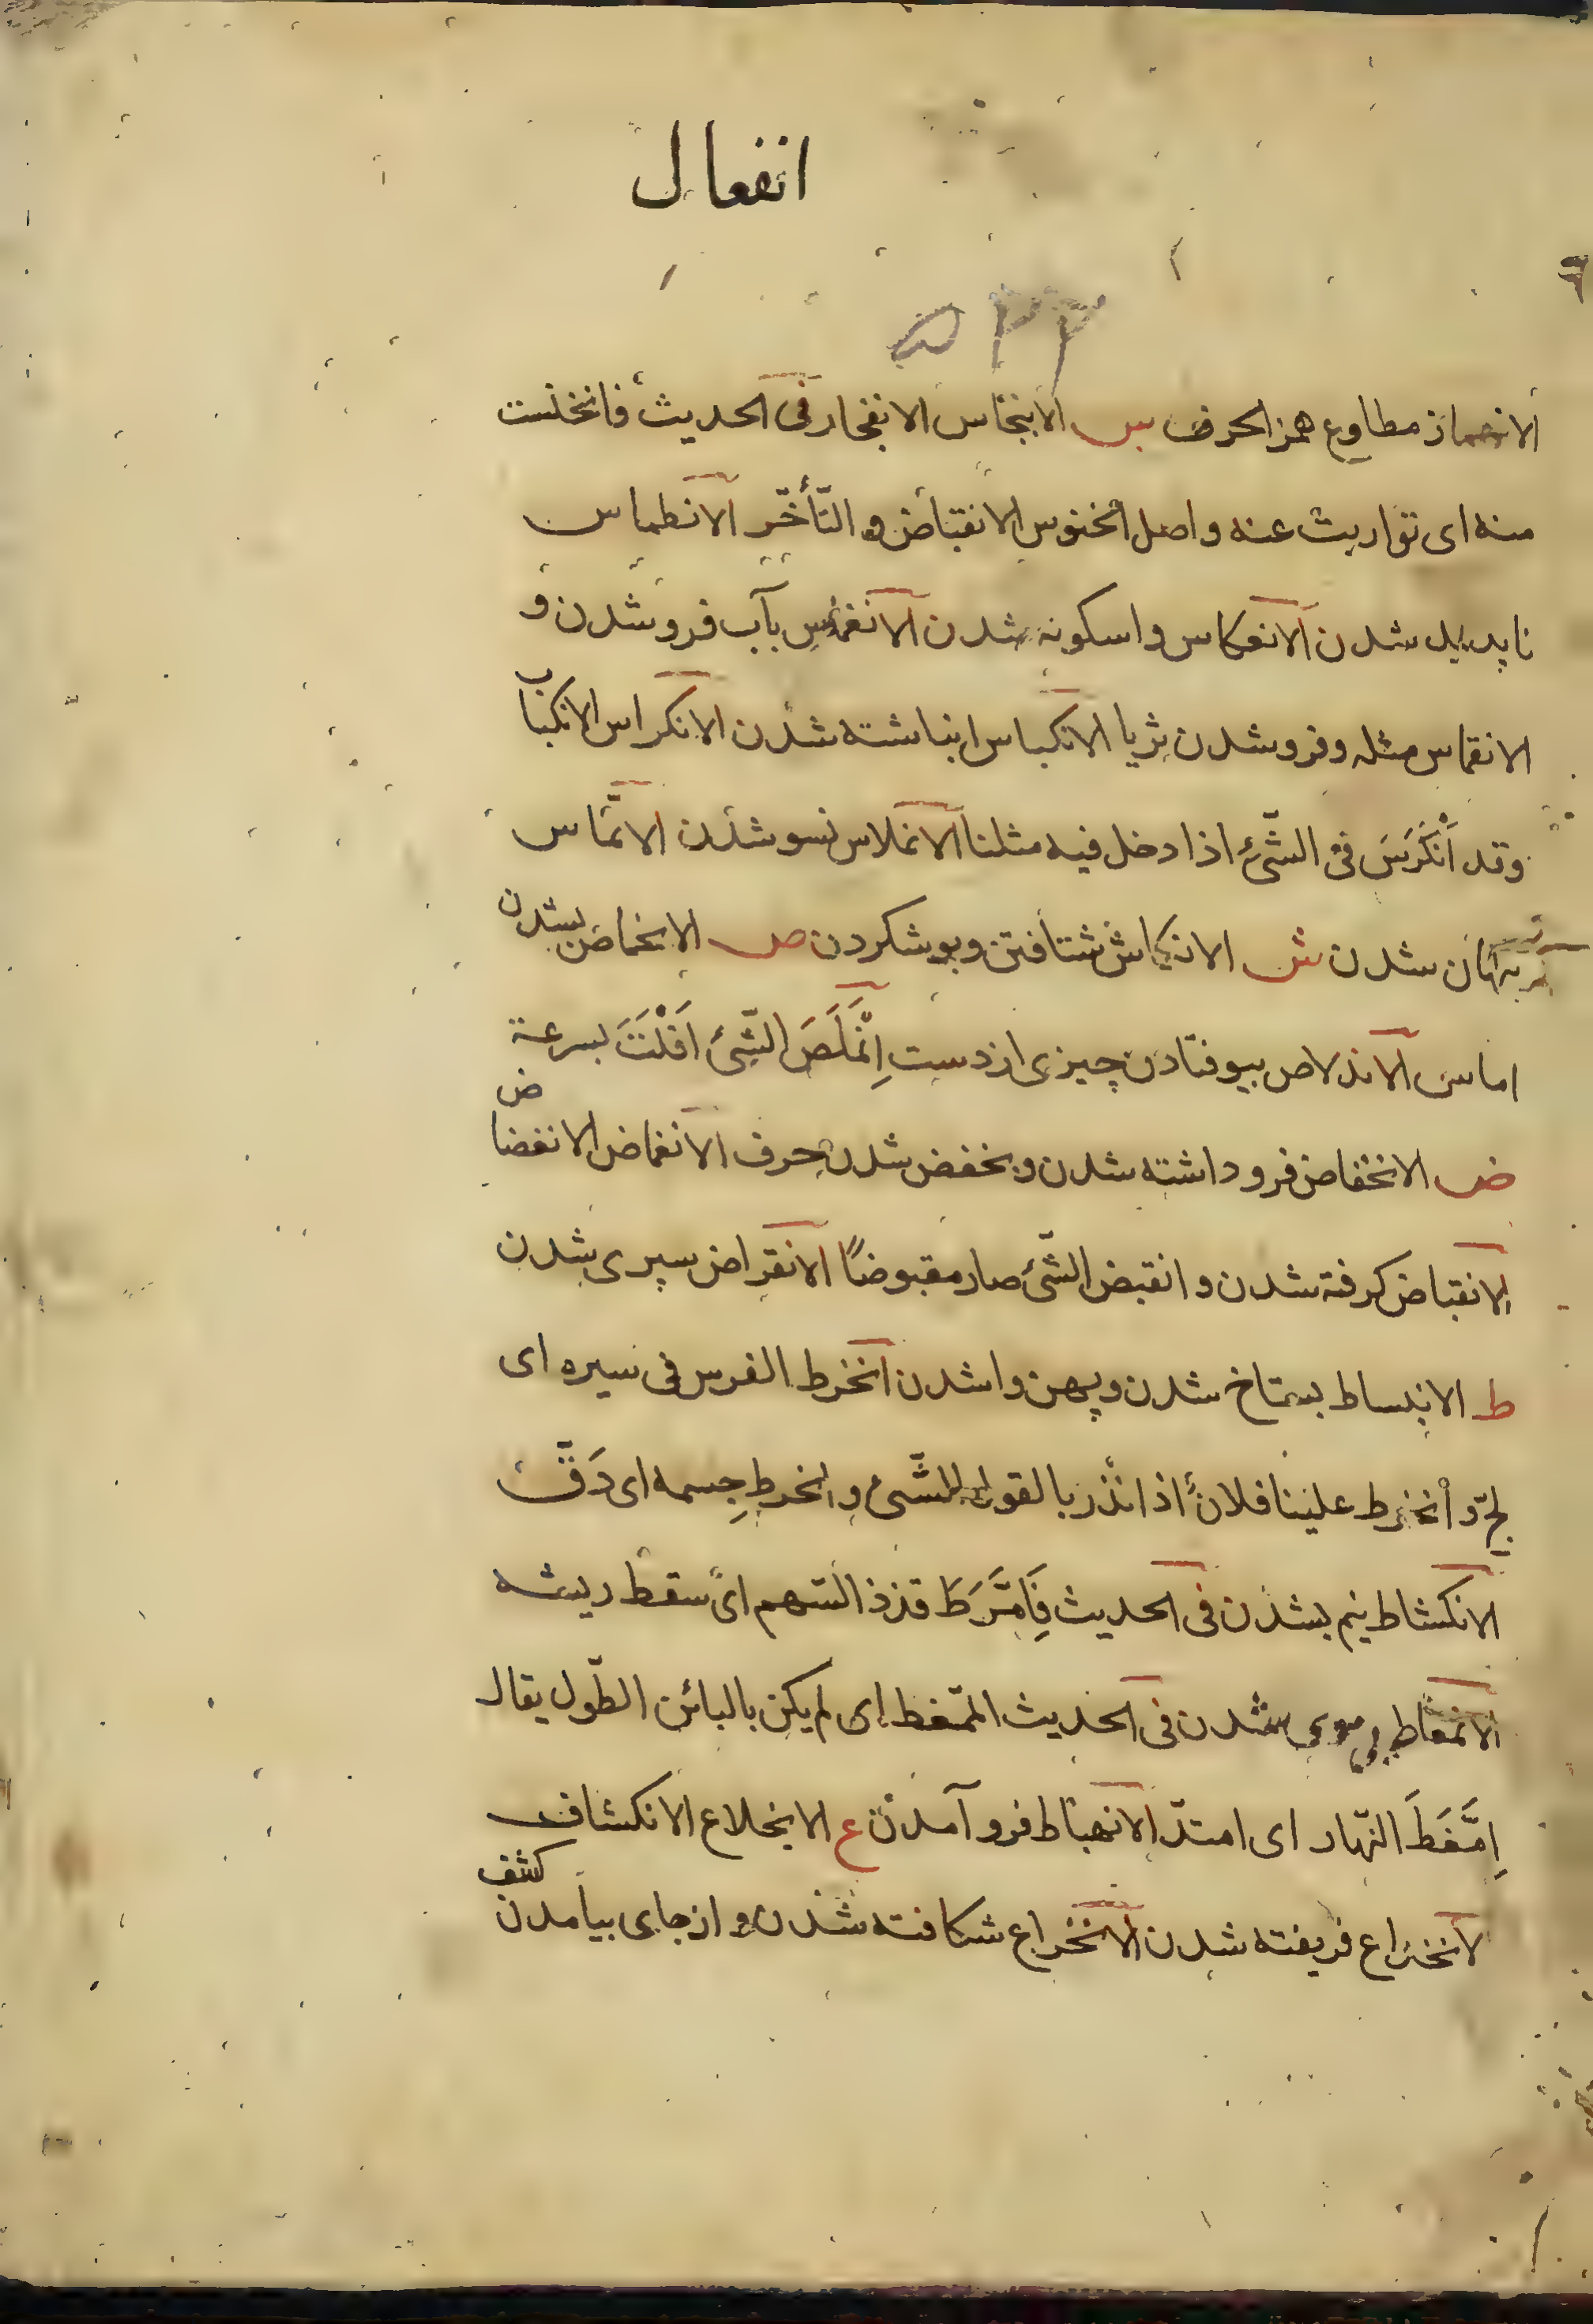 انفعال
۵۲۲
الانهماز مطاوع همز الحرف س الانبجاس الانفجار فى الحديث فانخنست
منه اى تواريت عنه واصل الخنوس الانقباض و التّأخّر الانطماس
ناپديد شدن الانعكاس واسكونه شدن الانغماس بآب فرو شدن و
الانقماس مثله وفرو شدن ثريا الانكباس انباشته شدن الانكراس الانكباب
وقد اَنْكَرَسَ فى الشّئ اذا دخل فيه مثلنا الانملاس نسو شدن الانّماس
پنهان شدن ش الانكماش شتافتن وبوشكردن ص الانخماص بشدن
اماس الاندلاص بيوفتادن چيزى از دست اِنْمَلَصَ الشّئ اَفْلَتَ بسرعة
ض الانخفاض فرو داشته شدن و بخفض شدن حرف الانغماض الانفضاض
الانقباض گرفته شدن و انقبض الشّئ صار مقبوضًا الانقراض سپرى شدن
ط الانبساط بستاخ شدن و پهن وا شدن انخرط الفرس فى سيره اى
لجّ و انخرط علينا فلانٌ اذا انذر بالقول السّئ و انخرط جِسمه اى دَقَّ
الانكشاط نيم بشدن فى الحديث فَامَّرَطَ قذذ السّهم اى سقط ريشه
الانمعاط موى بشدن فى الحديث الممّغط اى لم يكن بالبائن الطّول يقال
اِمَّغَطَ النّهار اى امتدّ الانهباط فرو آمدن ع الانخلاع الانكشاف
لانخداع فريفته شدن الانخراع شكافته شدن و از جاى بيامدن كتف